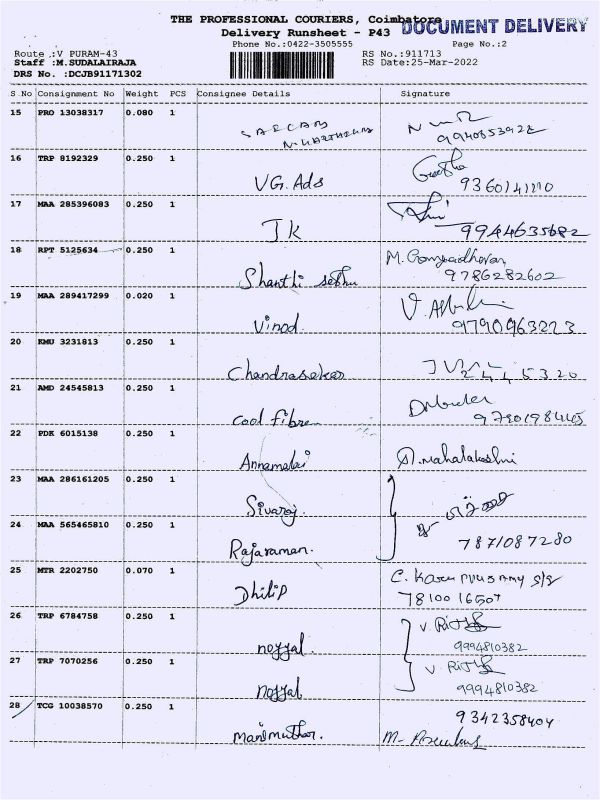 THE PROFESSIONAL COURIERS, Coimbatore
DOCUMENT DELIVERY
Delivery Runsheet - P43
Phone No.:0422-3505555
Page No.:2
Route :V PURAM-43
RS No.:911713
Staff :M.SUDALAIRAJA
RS Date:25-Mar-2022
DRS No. :DCJB91171302
S No Consignment No Weight PCS Consignee Details Signature
15 PRO 13038317 0.080 1
N. KARTHIKEYAN
9940853922
16 TRP 8192329 0.250 1
VG. Ads Geetha
17 MAA 285396083 0.250 1
JK 9944635682
18 RPT 5125634 0.250 1
Shanthi sethu 9786282602
19 MAA 289417299 0.020 1
Vinod 9790963223
20 KMU 3231813 0.250 1
Chandrasekar
21 AMD 24545813 0.250 1
cool fibre
22 PDK 6015138 0.250 1
Annamalai Mahalakshmi
23 MAA 286161205 0.250 1
Sivaraj
24 MAA 565465810 0.250 1
Rajaraman. 7871087280
25 MTR 2202750 0.070 1
Dhilip 7810016507
26 TRP 6784758 0.250 1
noyyal. 9994810382
27 TRP 7070256 0.250 1
noyyal 9994810382
28 TCG 10038570 0.250 1
9342358404
manimuthu.